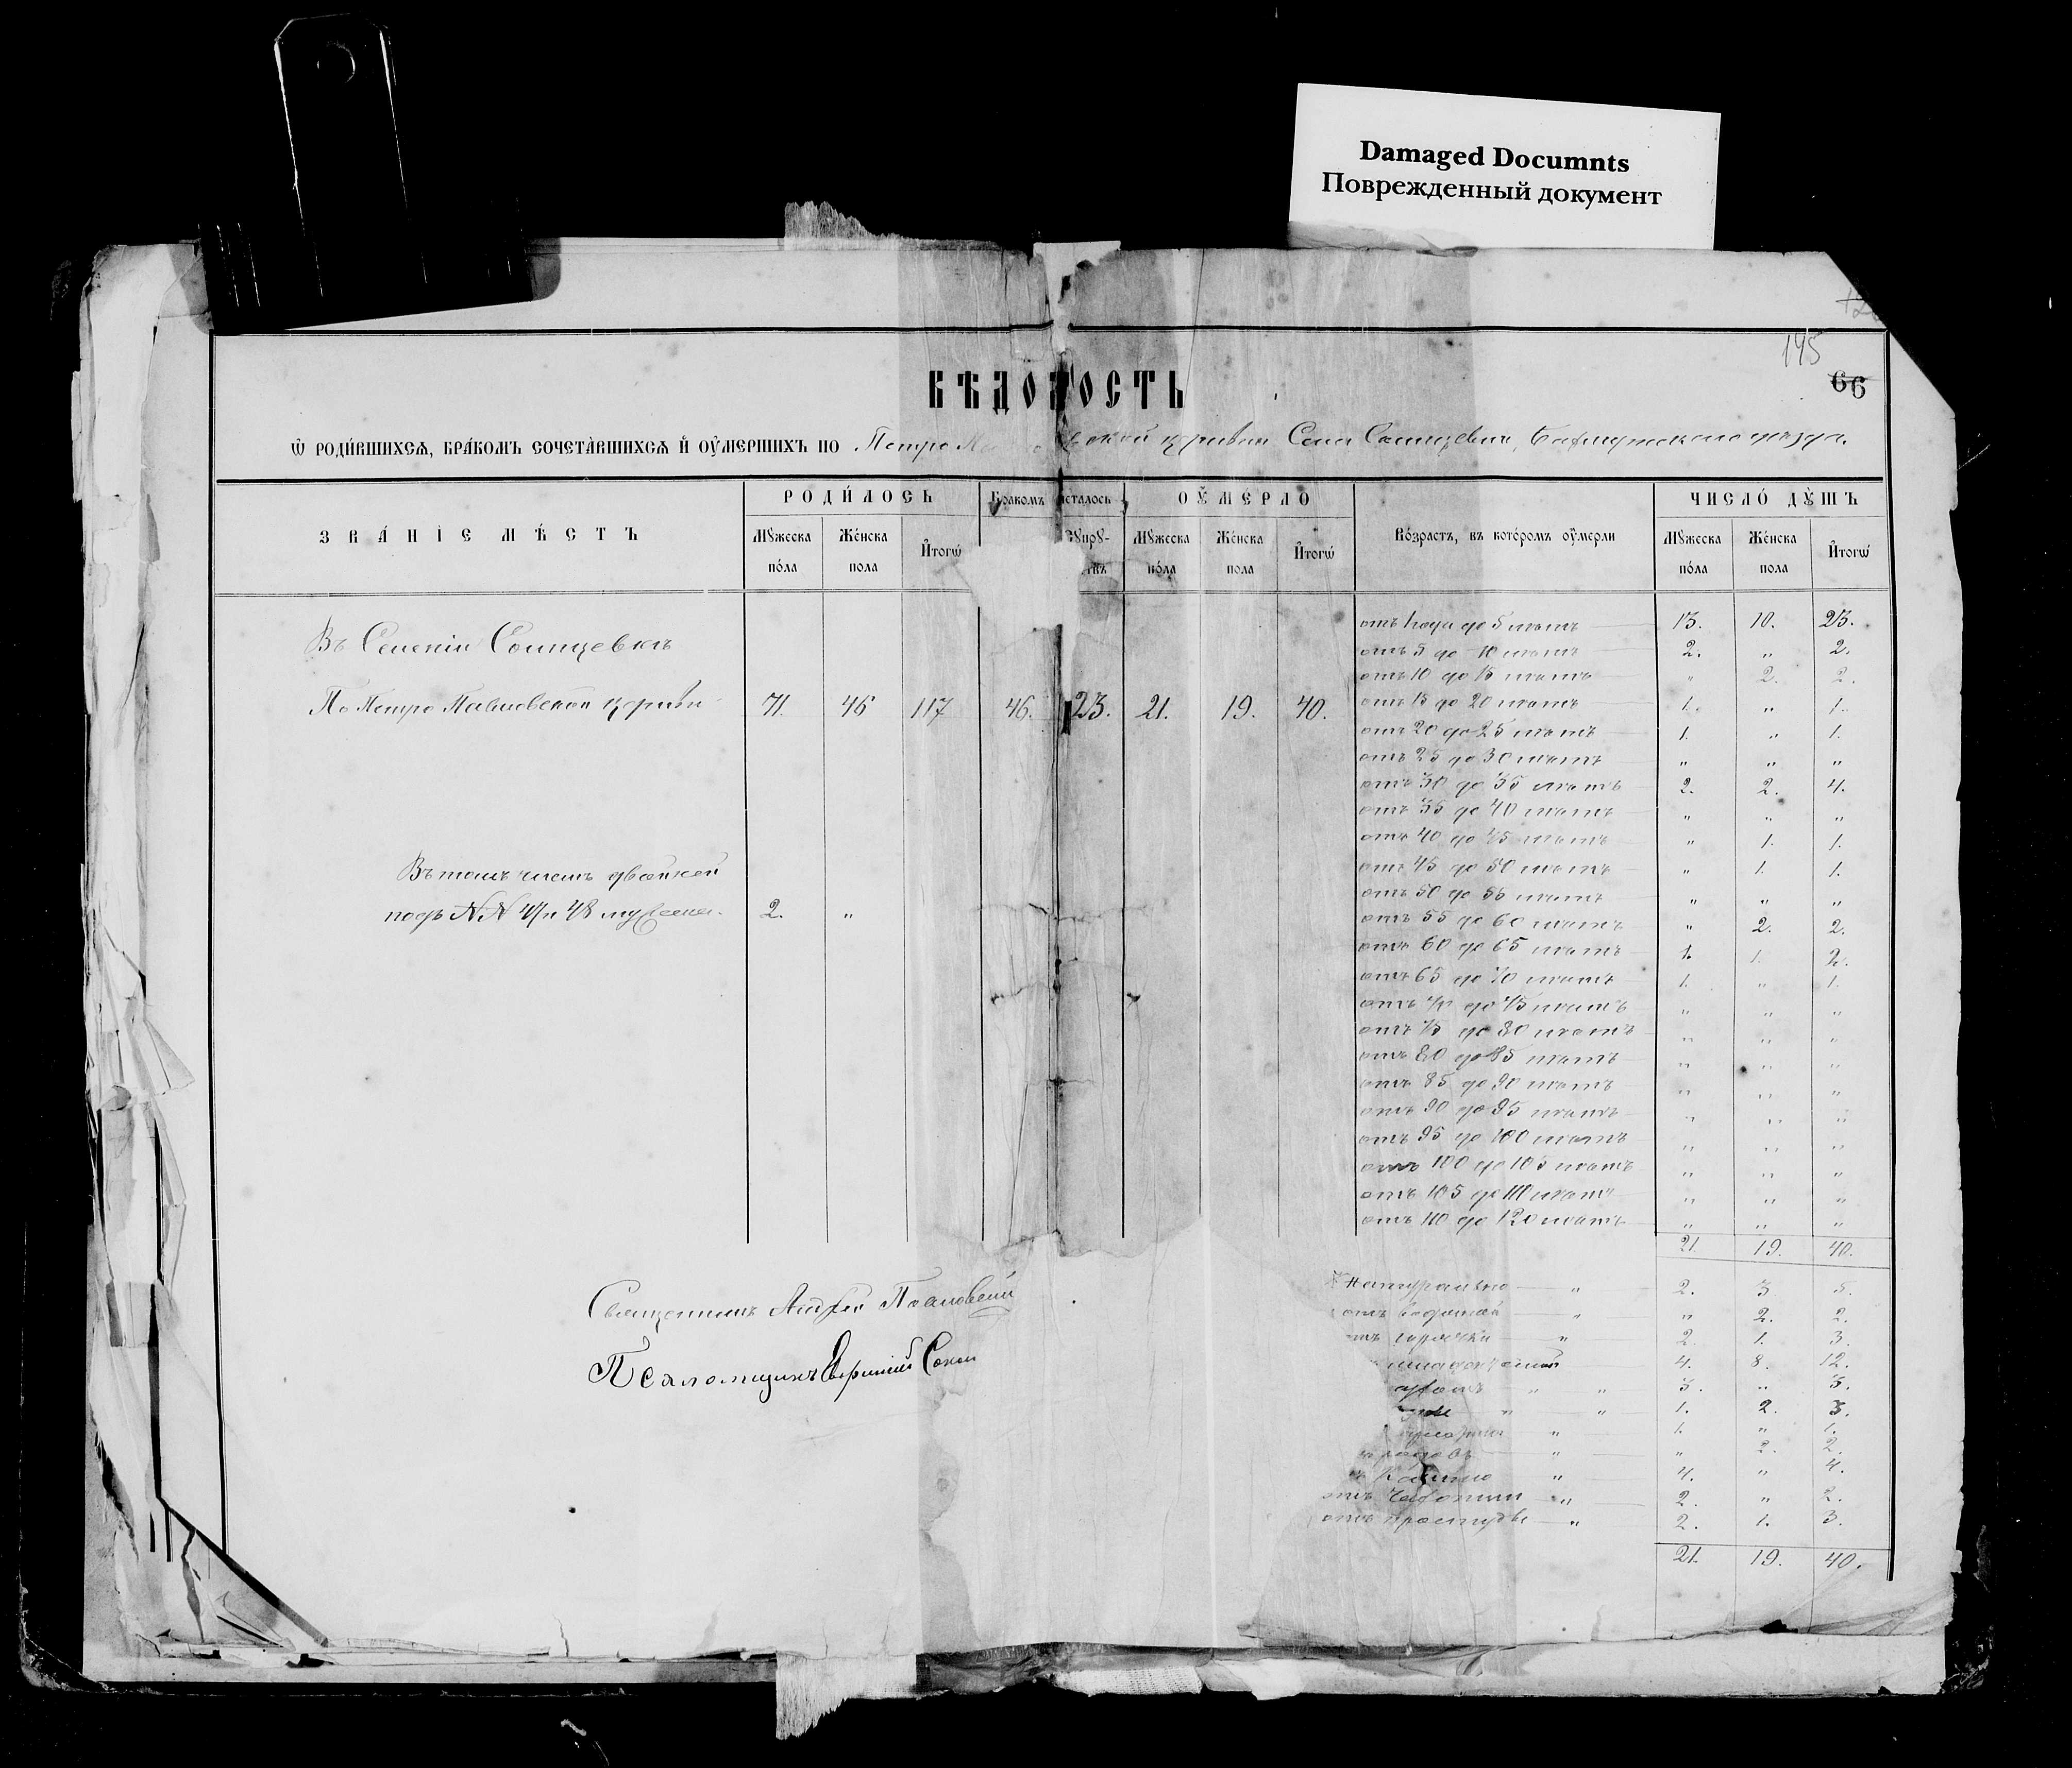 Damaged Documnts
Поврежденный документ
145
66
ВѢДОМОСТЬ
Ѡ РОДИ́ВШИХСѦ, БРА́КОМЪ СОЧЕТА́ВШИХСѦ И҆ ОУ҆МЕРШИХЪ ПО Петро церкви Села Бахмутскаго уѣзда.
ЗВА́НІЕ МѢ́СТЪ
РОДИ́ЛОСЬ
Бракомъ четалось
ОУ҆МЕРЛО
Во́зрастъ, въ кото́ромъ оу҆мерли
ЧИСЛО́ ДꙊ́ШЪ
Мꙋ́жеска по́ла
Же́нска пола
И҆тогѡ
Мꙋ́жеска по́ла
Же́нска пола
И҆тогѡ
Мꙋ́жеска по́ла
Же́нска пола
И҆тогѡ
Въ Селеніи
По Петро Павловской церкви 71. 46 117 46. 23. 21. 19. 40.
Въ томъ числѣ двойней
подъ №№ 47 и 48 2. „
отъ 1 года до 5 лѣтъ 13. 10. 23.
отъ 5 до 10 лѣтъ 2. „ 2.
отъ 10 до 15 лѣтъ „ 2. 2.
отъ 15 до 20 лѣтъ 1. „ 1.
отъ 20 до 25 лѣтъ 1. „ 1.
отъ 25 до 30 лѣтъ „ „ „
отъ 30 до 35 лѣтъ 2. 2. 4.
отъ 35 до 40 лѣтъ „ „ „
отъ 40 до 45 лѣтъ „ 1. 1.
отъ 45 до 50 лѣтъ „ 1. 1.
отъ 50 до 55 лѣтъ „ „ „
отъ 55 до 60 лѣтъ „ 2. 2.
отъ 60 до 65 лѣтъ 1. 1. 2.
отъ 65 до 70 лѣтъ 1. „ 1.
отъ 70 до 75 лѣтъ „ „ „
отъ 75 до 80 лѣтъ „ „ „
отъ 80 до 85 лѣтъ „ „ „
отъ 85 до 90 лѣтъ „ „ „
отъ 90 до 95 лѣтъ „ „ „
отъ 95 до 100 лѣтъ „ „ „
отъ 100 до 105 лѣтъ „ „ „
отъ 105 до 110 лѣтъ „ „ „
отъ 110 до 120 лѣтъ „ „ „
21. 19. 40.
Натурально „ 2. 3. 5.
отъ „ „ 2. 2.
горячки „ 2. 1. 3.
4. 8. 12.
„ „ 3. „ 3.
„ „ 1. 2. 3.
„ 1. „ 1.
родовъ „ „ 2. 2.
Кашлю „ 4. „ 4.
отъ Чахотки „ 2. „ 2.
отъ простуды „ 2. 1. 3.
21. 19. 40.
Священникъ Андрей
Псаломщикъ